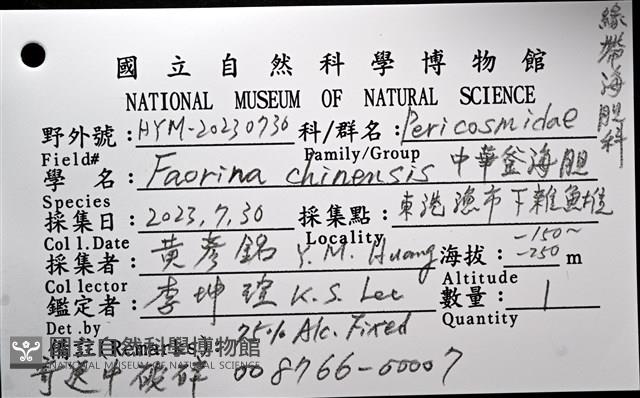 國立自然科學博物館
NATIONAL MUSEUM OF NATURAL SCIENCE
緣帶海胆科
野外號：HYM-20230730 科/群名：Pericosmidae
Field# Family/Group
學 名：Faorina chinensis 中華釜海胆
Species
採集日：2023,7,30 採集點：東港漁市下雜魚堆
Coll.Date Locality
採集者：黃彥銘 Y.M. Huang 海拔：-150~-250 m
Collector Altitude
鑑定者：李坤瑄 K.S. Lee 數量：1
Det.by Quantity
75% Alc. Fixed
備註(Remarks
國立自然科學博物館
NATIONAL MUSEUM OF NATURAL SCIENCE
寄送中破碎 008766-00007